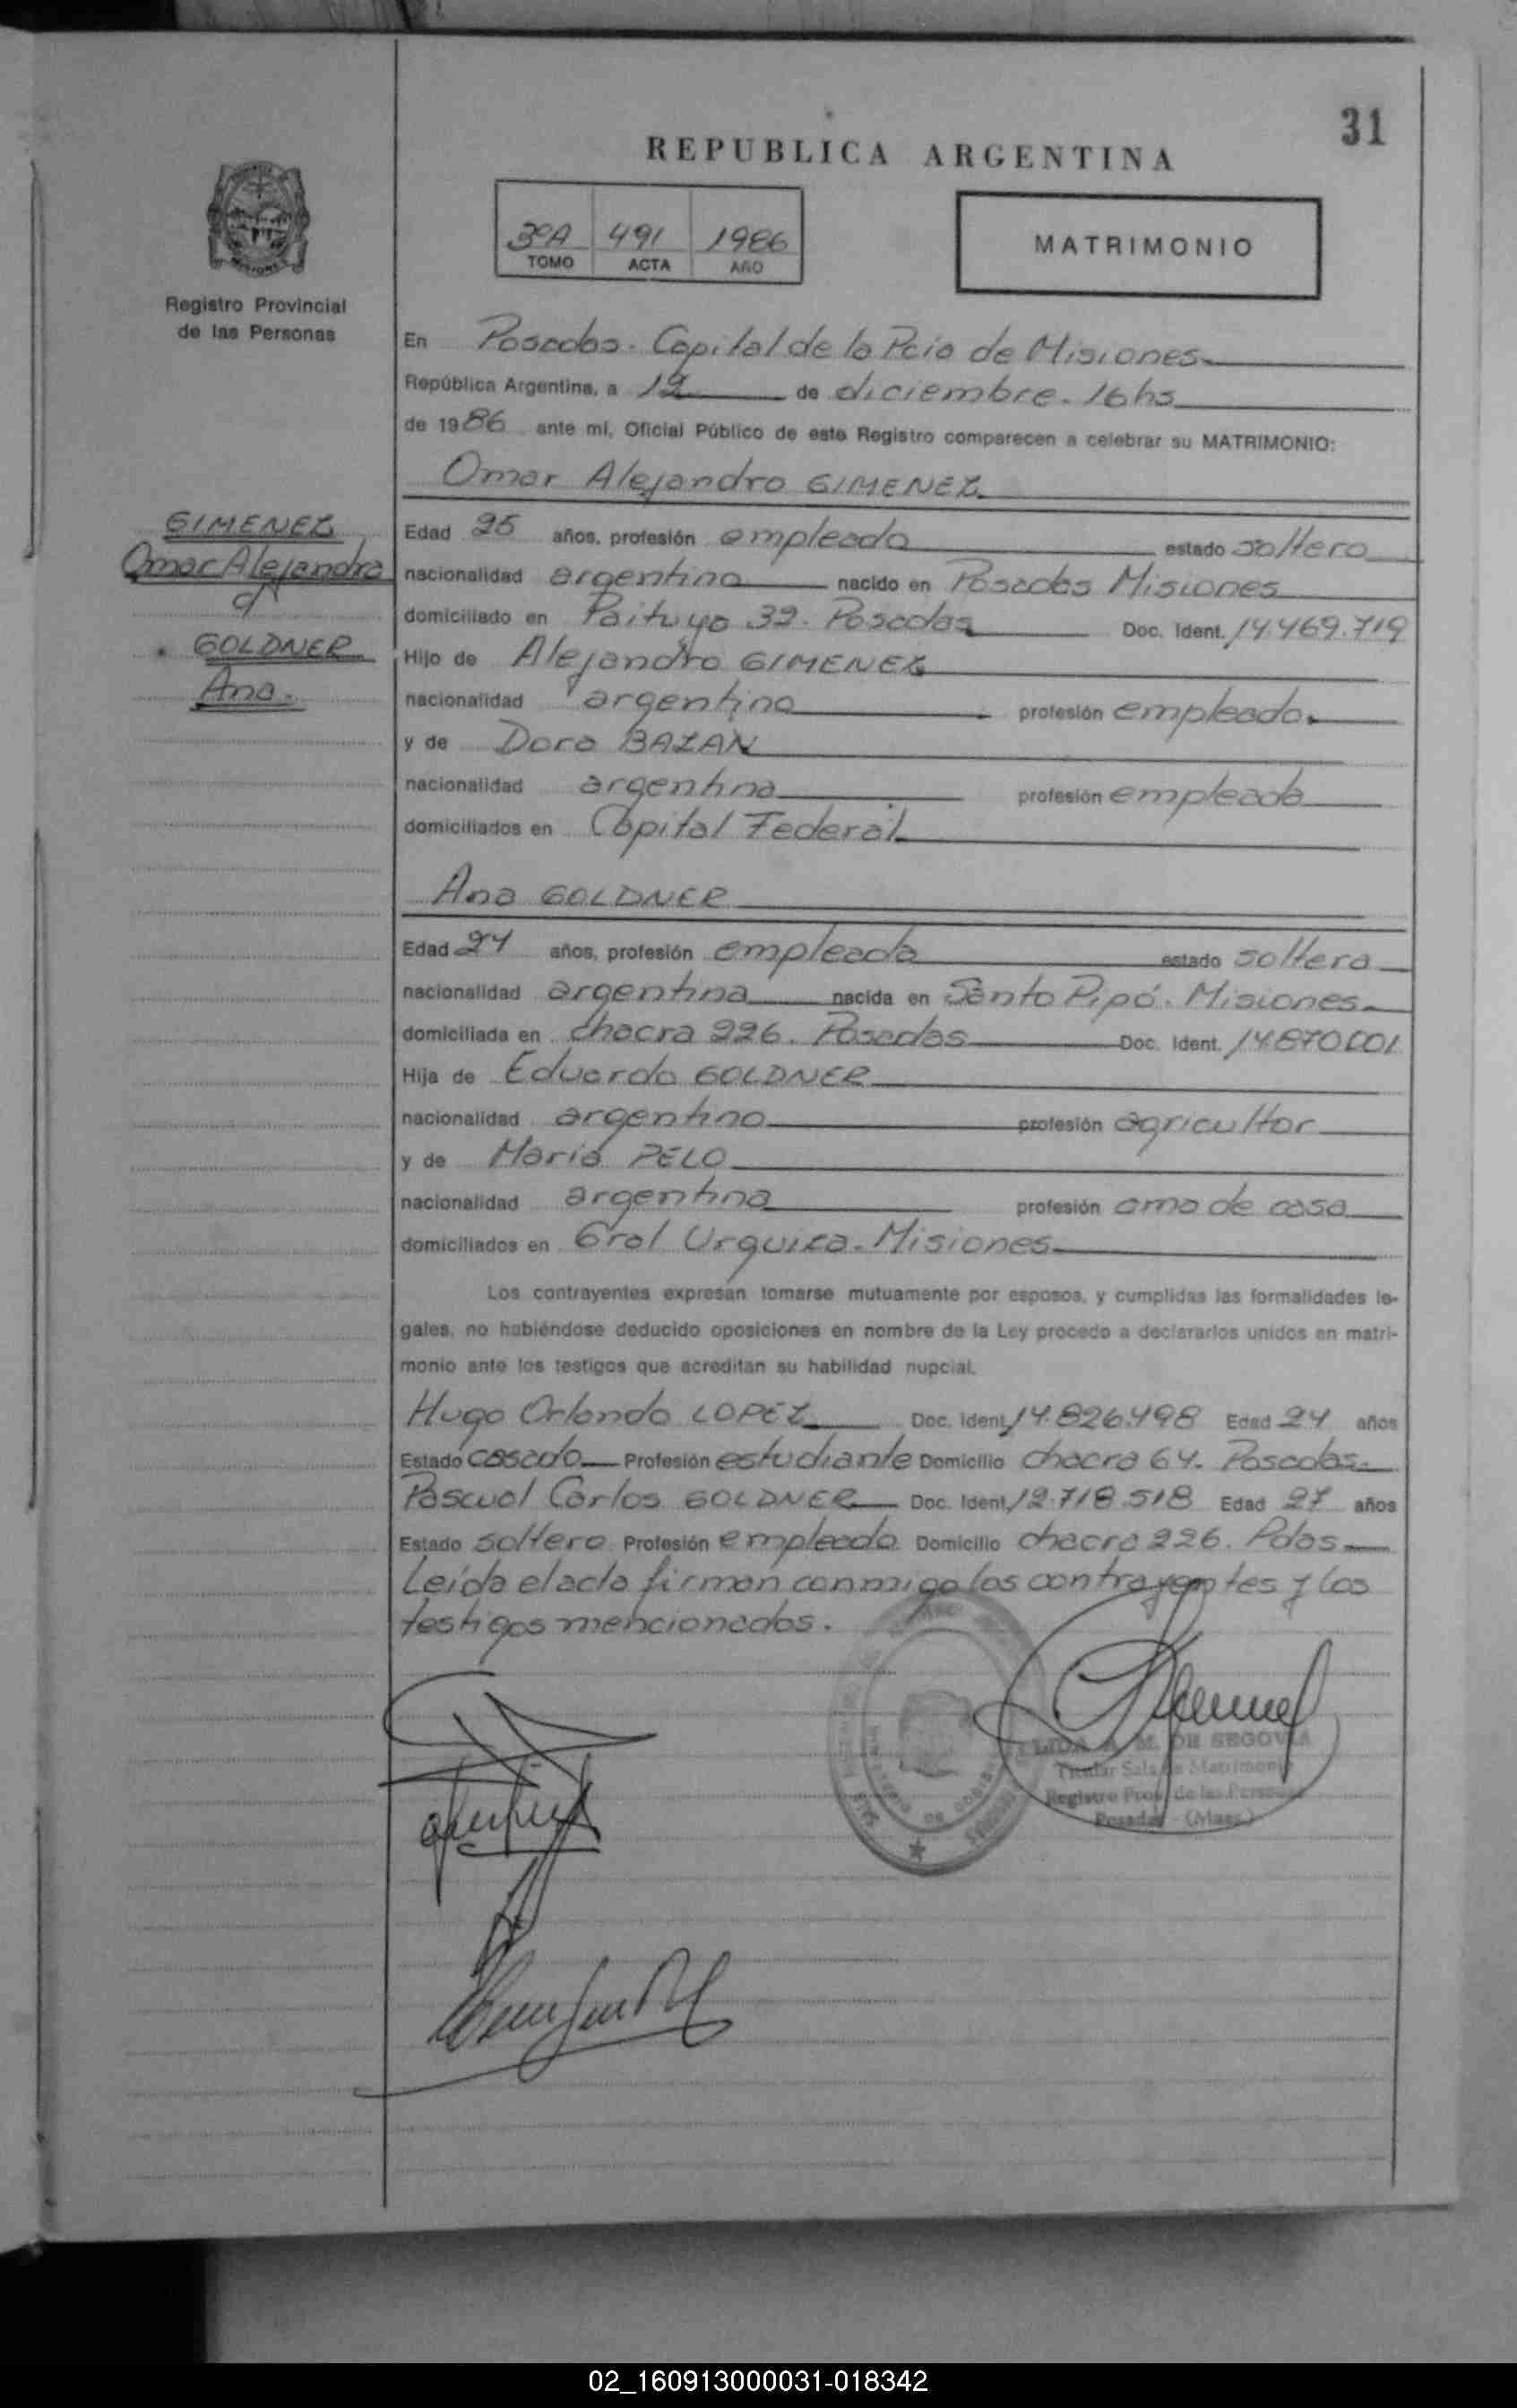 31
REPUBLICA ARGENTINA
3ºA 491 1986
TOMO ACTA AÑO
MATRIMONIO
MISIONES
Registro Provincial
de las Personas
GIMENEZ
Omar Alejandro
c/
GOLDNER
Ana.
En Posadas. Capital de la Pcia de Misiones
República Argentina, a 12 de diciembre. 16hs
de 1986 ante mí, Oficial Público de este Registro comparecen a celebrar su MATRIMONIO:
Omar Alejandro GIMENEZ
Edad 25 años, profesión empleado estado soltero
nacionalidad argentina nacido en Posadas Misiones
domiciliado en Paituyo 32. Posadas Doc. Ident. 14.469.719
Hijo de Alejandro GIMENEZ
nacionalidad argentina profesión empleado.
y de Dora BAZAN
nacionalidad argentina profesión empleada
domiciliados en Capital Federal
Ana GOLDNER
Edad 24 años, profesión empleada estado soltera
nacionalidad argentina nacida en Santo Pipó. Misiones
domiciliada en chacra 226. Posadas Doc. Ident. 14.870.001
Hija de Eduardo GOLDNER
nacionalidad argentino profesión agricultor
y de Maria PELO
nacionalidad argentina profesión ama de casa
domiciliados en Gral Urquiza. Misiones
Los contrayentes expresan tomarse mutuamente por esposos, y cumplidas las formalidades le-
gales, no habiéndose deducido oposiciones en nombre de la Ley procedo a declararlos unidos en matri-
monio ante los testigos que acreditan su habilidad nupcial.
Hugo Orlando LOPEZ Doc. Ident. 14.826.498 Edad 24 años
Estado casado Profesión estudiante Domicilio chacra 64. Posadas
Pascual Carlos GOLDNER Doc. Ident. 12.718.518 Edad 27 años
Estado soltero Profesión empleado Domicilio chacra 226. Pdas
Leída el acta firman conmigo los contrayentes y los
testigos mencionados.
M. DE SEGOVIA
Titular Sala de Matrimonio
Registro Prov. de las Personas
Posadas - (Mnes.)
02_160913000031-018342